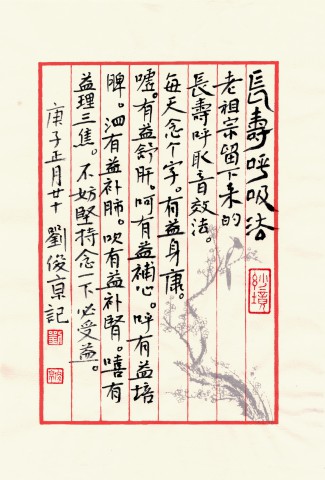 長壽呼吸法
老祖宗留下来的
長壽呼取音效法。
每天念个字。有益身康。
嘘。有益舒肝。呵有益補心。呼有益培
脾。泗有益补肺。吹有益补腎。嘻有
益理三焦。不妨堅持念一下必受益。
庚子正月廿 劉俊京記